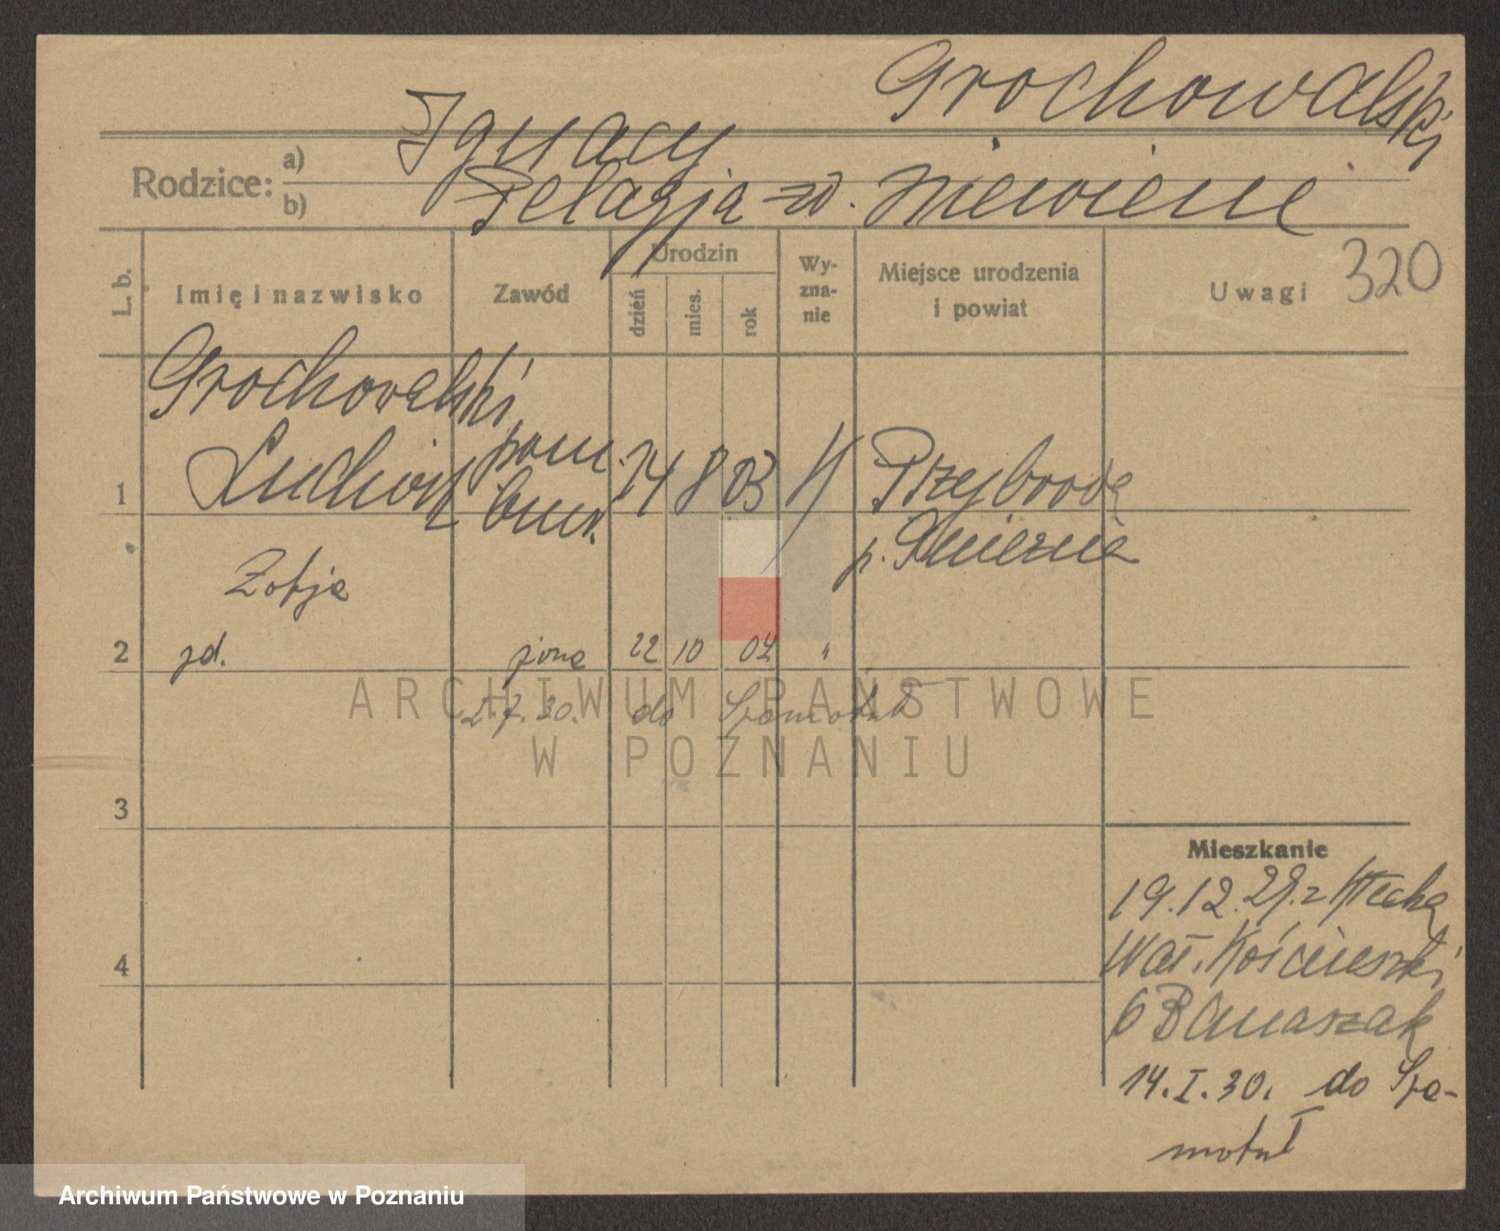 Grochowalski
Rodzice: a) Ignacy
b) Pelagja z d.
L. b.
Imię i nazwisko
Zawód
Urodzin
dzień
mies.
rok
Wy-
zna-
nie
Miejsce urodzenia
i powiat
Uwagi
320
Grochowalski
1 Ludwik
pom.
biur.
14 8 03
K
Przybroda
p. Gniezno
Zofja
2
żona 22 10 04 "
2.7.30. do Szamotuł
ARCHIWUM PAŃSTWOWE
W POZNANIU
3
4
Mieszkanie
19.12.29. z Kłecka
Wał. Kościuszki
6 Banaszak
14.I.30. do Sza-
motuł
Archiwum Państwowe w Poznaniu